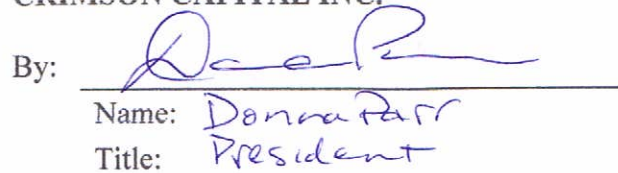 CRIMSON CAPITAL INC.
By:
Name: Donna Parr
Title: President